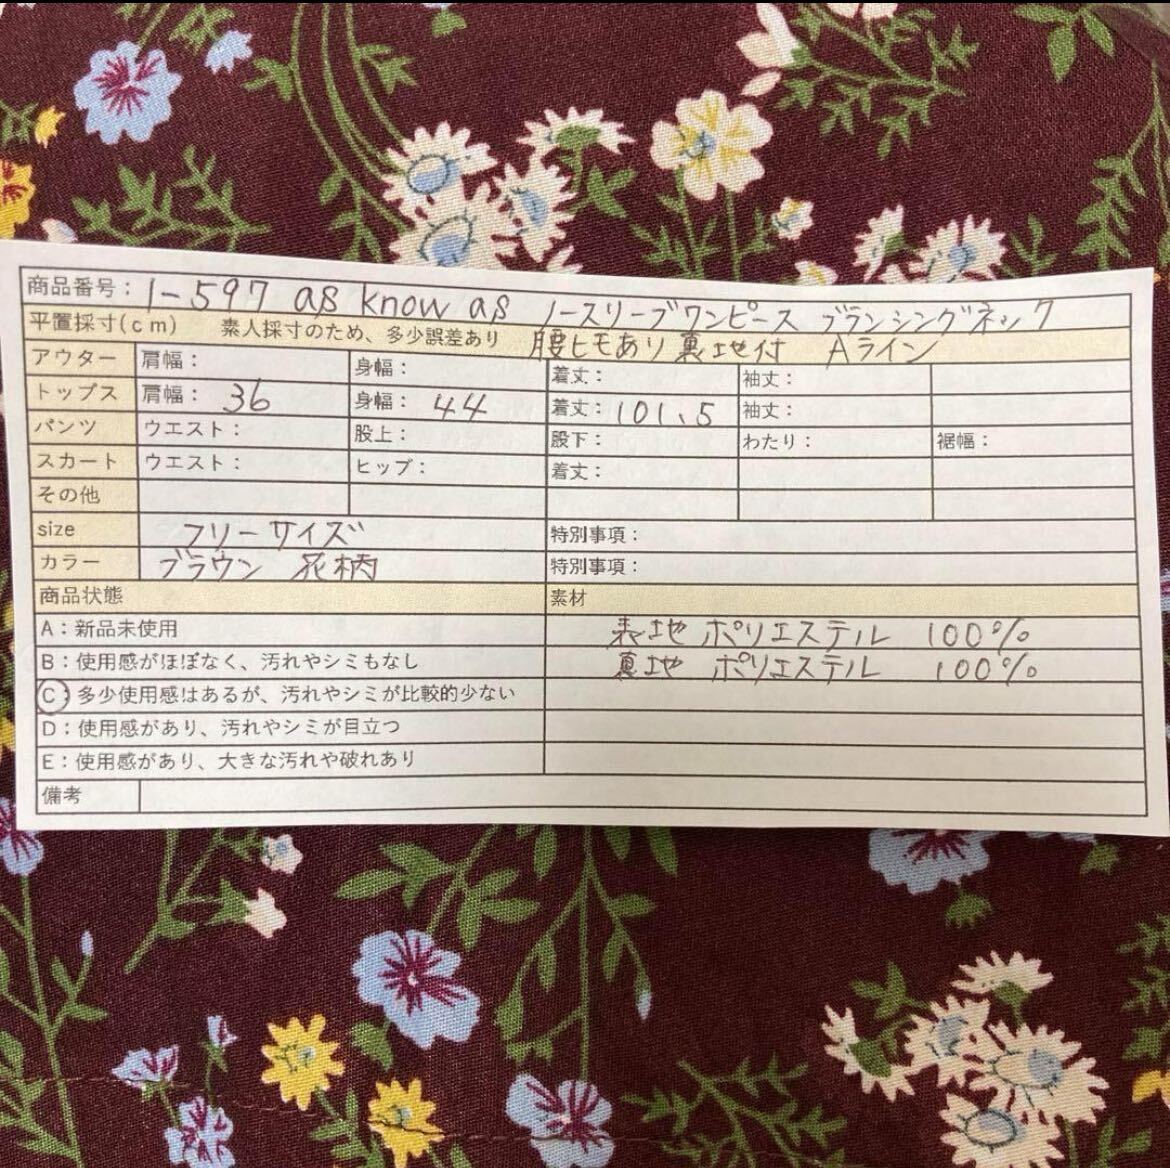 商品番号： 1-597 as know as ノースリーブワンピース ブランシングネック
平置採寸(cm) 素人採寸のため、多少誤差あり 腰ヒモあり 裏地付 Aライン
アウター 肩幅： 身幅： 着丈： 袖丈：
トップス 肩幅： 36 身幅： 44 着丈： 101.5 袖丈：
パンツ ウエスト： 股上： 股下： わたり： 裾幅：
スカート ウエスト： ヒップ： 着丈：
その他
size フリーサイズ 特別事項：
カラー ブラウン 花柄 特別事項：
商品状態 素材
A：新品未使用 表地 ポリエステル 100%
B：使用感がほぼなく、汚れやシミもなし 裏地 ポリエステル 100%
C：多少使用感はあるが、汚れやシミが比較的少ない
D：使用感があり、汚れやシミが目立つ
E：使用感があり、大きな汚れや破れあり
備考